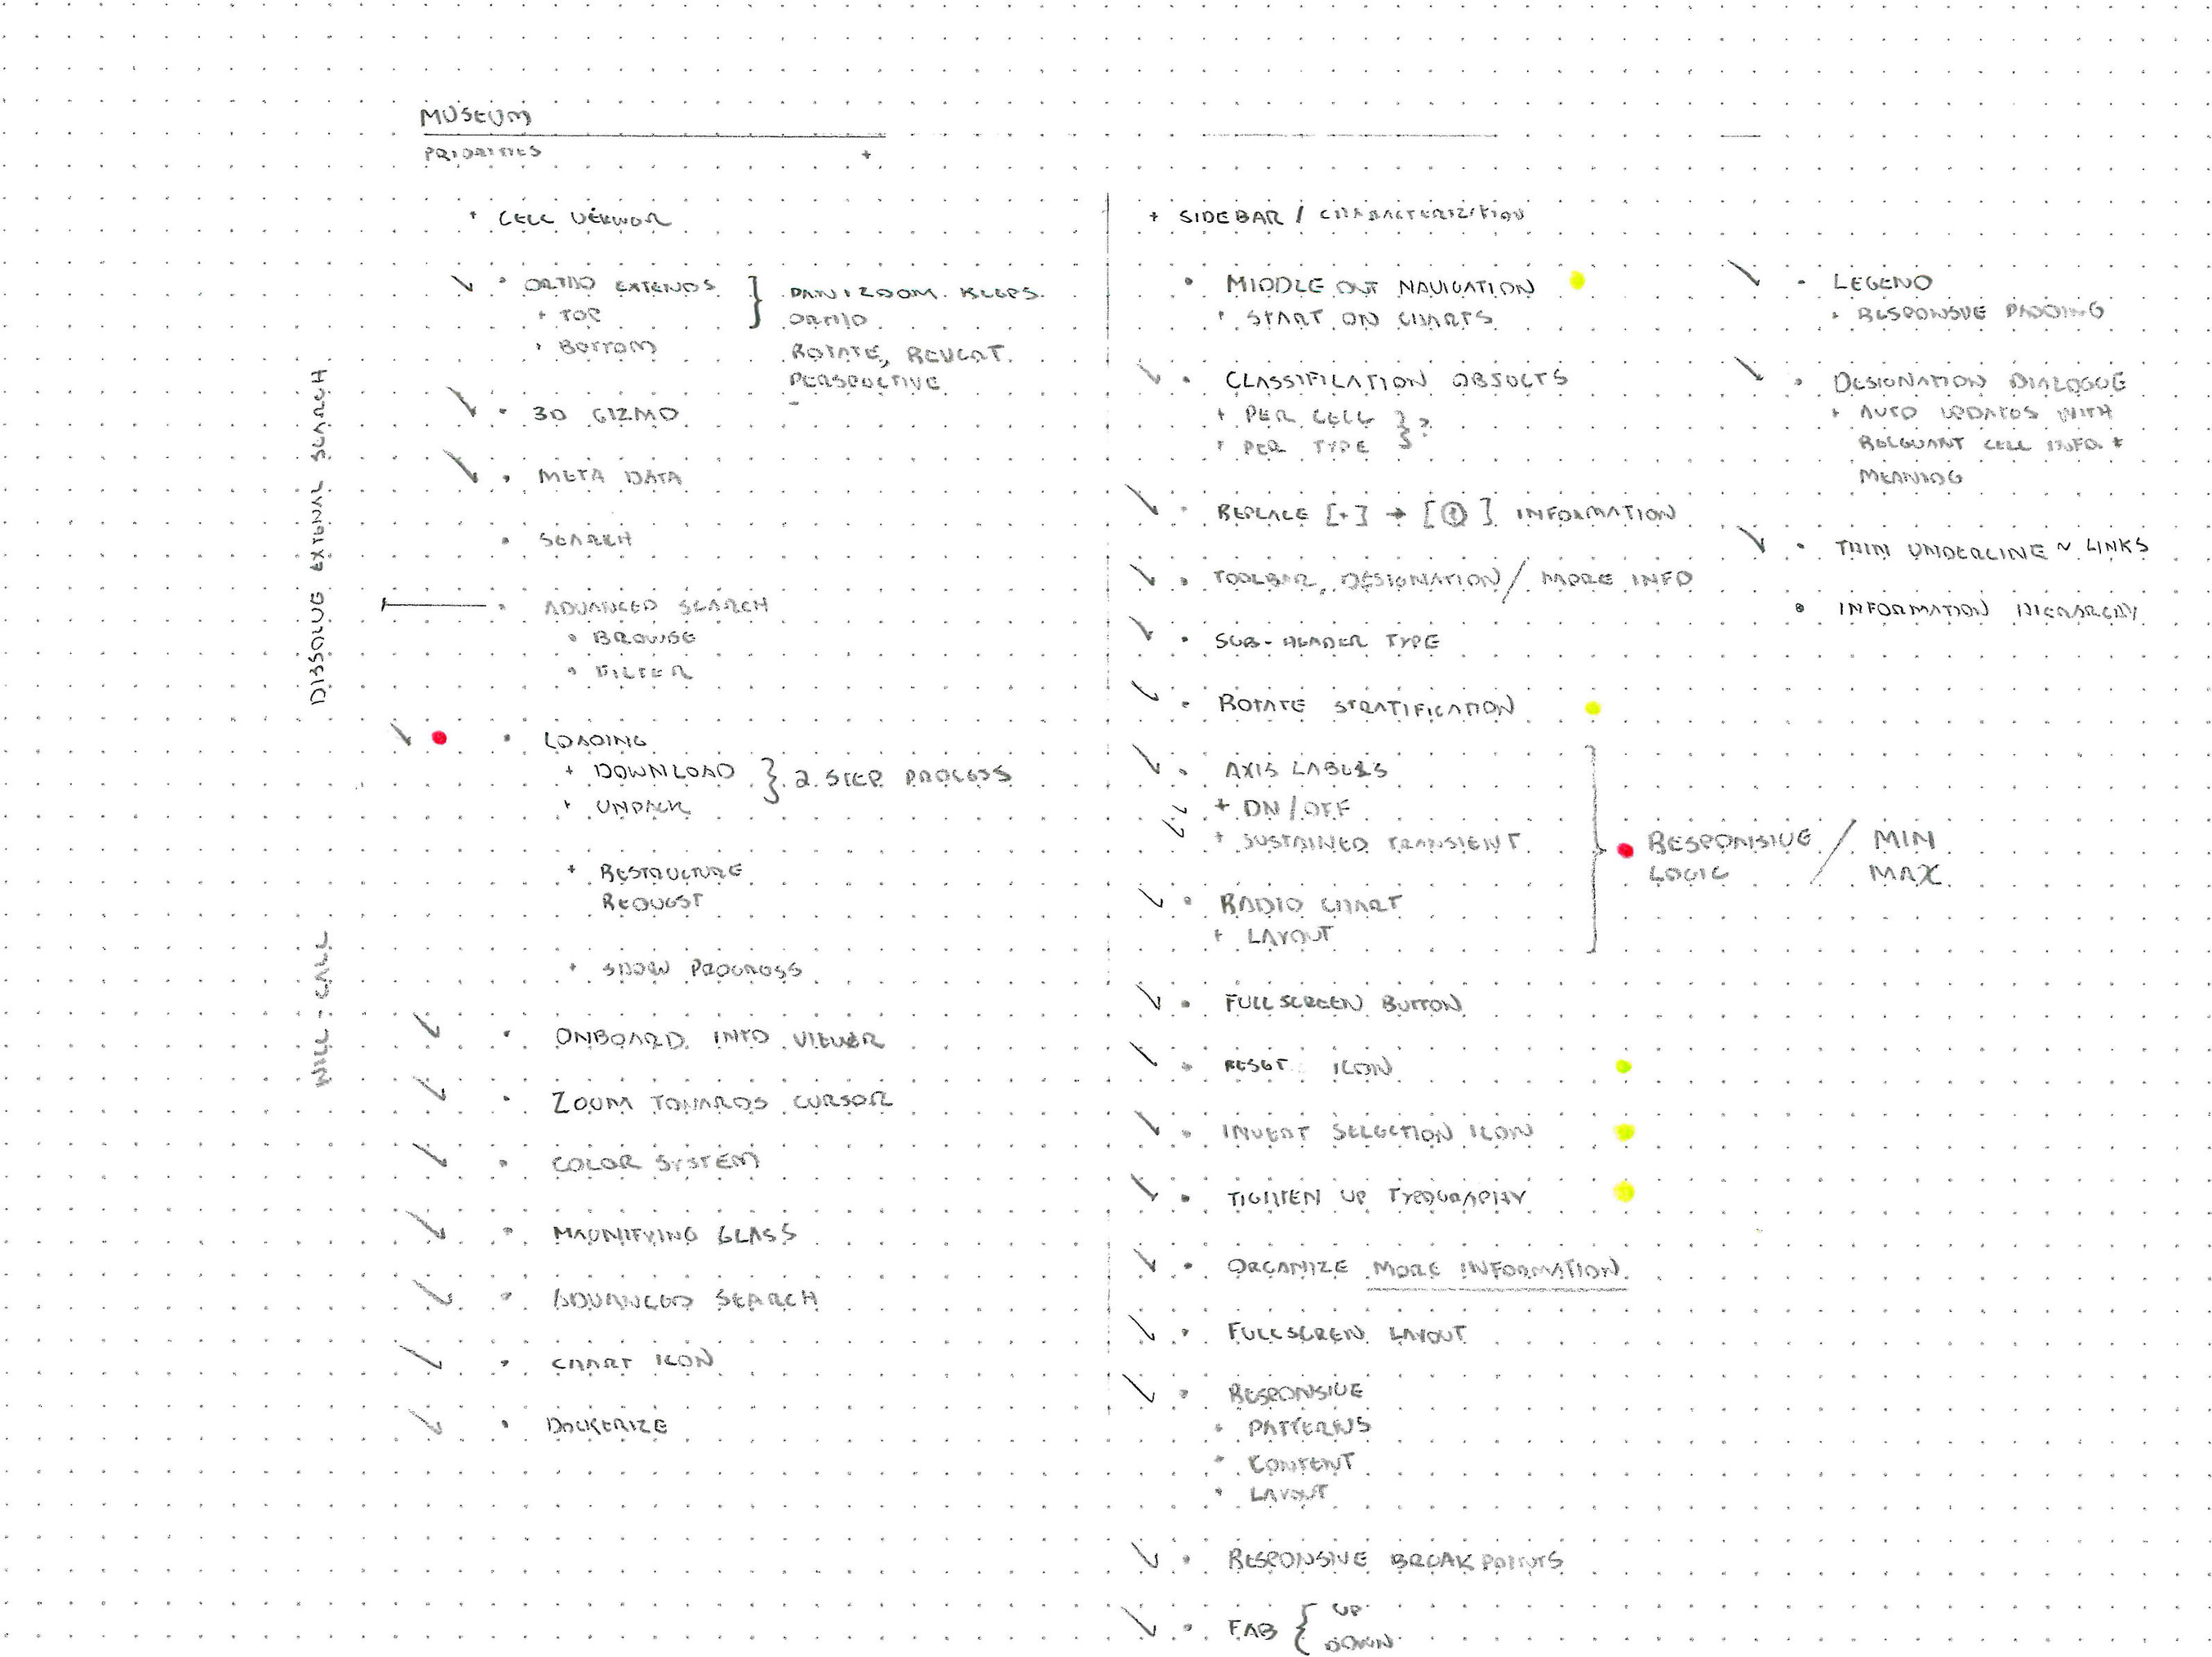 MUSEUM
PRIORITIES +
+ CELL VIEWER
• ORTHO EXTENDS } PAN / ZOOM KEEPS
+ TOP ORTHO
+ BOTTOM ROTATE, REVERT
PERSPECTIVE
• 3D GIZMO
• META DATA
• SEARCH
• ADVANCED SEARCH
• BROWSE
• FILTER
DISSOLVE EXTERNAL SEARCH
• LOADING
+ DOWNLOAD } 2 STEP PROCESS
+ UNPACK
+ RESTRUCTURE
REQUEST
+ SHOW PROGRESS
WILL - CALL
• ONBOARD INTO VIEWER
• ZOOM TOWARDS CURSOR
• COLOR SYSTEM
• MAGNIFYING GLASS
• ADVANCED SEARCH
• CHART ICON
• DOCKERIZE
+ SIDEBAR / CHARACTERIZATION
• MIDDLE OUT NAVIGATION
+ START ON CHARTS
• CLASSIFICATION OBJECTS
+ PER CELL } ?
+ PER TYPE
• REPLACE [+] → [ⓘ] INFORMATION
• TOOLBAR, DESIGNATION / MORE INFO
• SUB-HEADER TYPE
• ROTATE STRATIFICATION
• AXIS LABELS
+ ON / OFF
+ SUSTAINED TRANSIENT
• RADIO CHART
+ LAYOUT
} RESPONSIVE / MIN
LOGIC MAX
• FULLSCREEN BUTTON
• RESET ICON
• INVERT SELECTION ICON
• TIGHTEN UP TYPOGRAPHY
• ORGANIZE MORE INFORMATION
• FULLSCREEN LAYOUT
• RESPONSIVE
+ PATTERNS
+ CONTENT
+ LAYOUT
• RESPONSIVE BREAKPOINTS
• FAB { UP
DOWN
• LEGEND
+ RESPONSIVE PADDING
• DESIGNATION DIALOGUE
+ AUTO UPDATES WITH
RELEVANT CELL INFO. +
MEANING
• THIN UNDERLINE ~ LINKS
• INFORMATION HIERARCHY